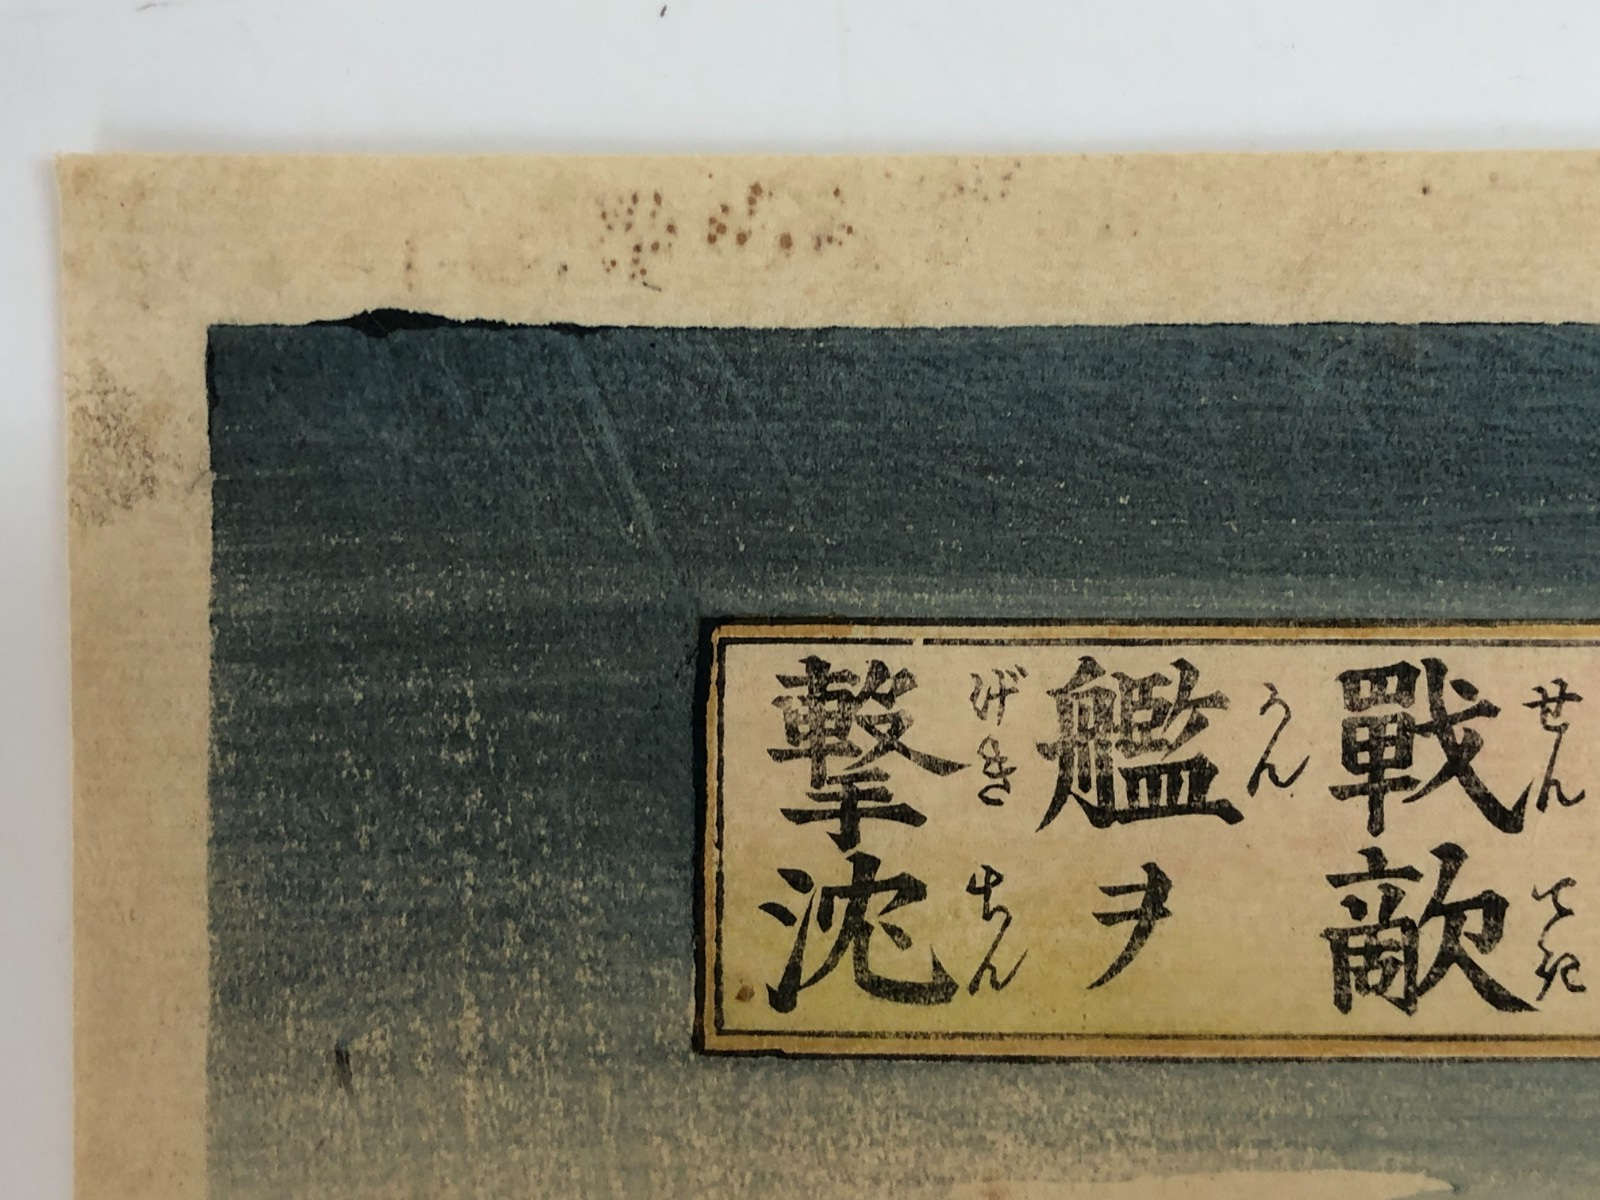 せんてき
戰敵
かん
艦ヲ
げきちん
撃沈